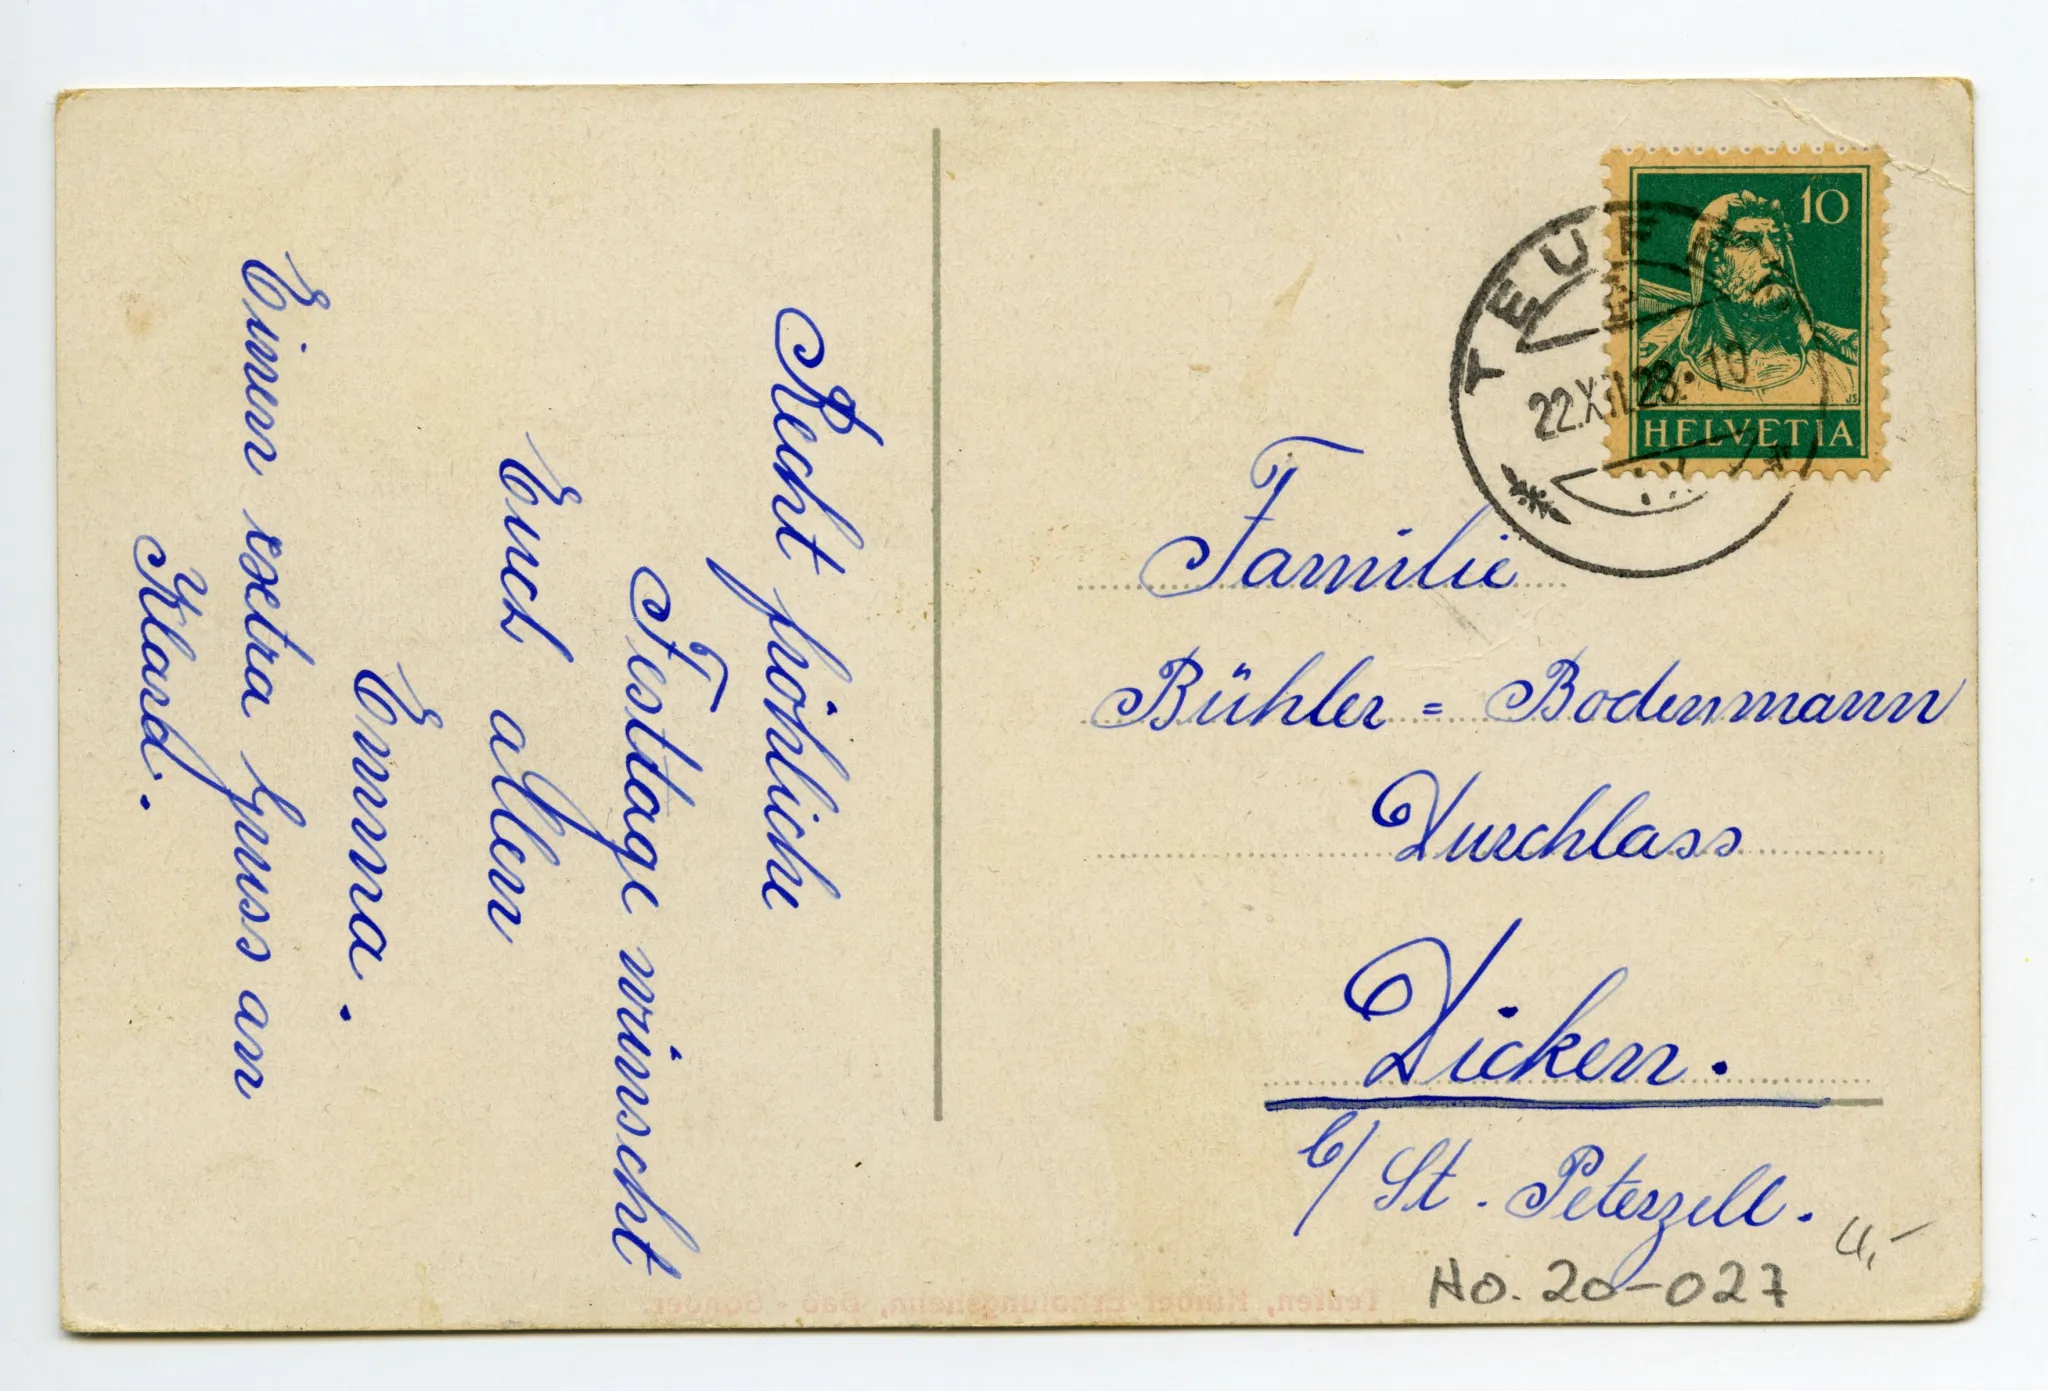 Recht fröhliche
Festtage wünscht
Euch allen
Emma.
Einen extra Gruss an
Klard.
TEUFEN
22.XII.28.10
10
HELVETIA
Familie
Bühler = Bodenmann
Durchlass
Dicken.
b/ St. Peterzell.
4,-
No. 20-027
Teufen, Kinder-Erholungsheim, Bad - Sonder.